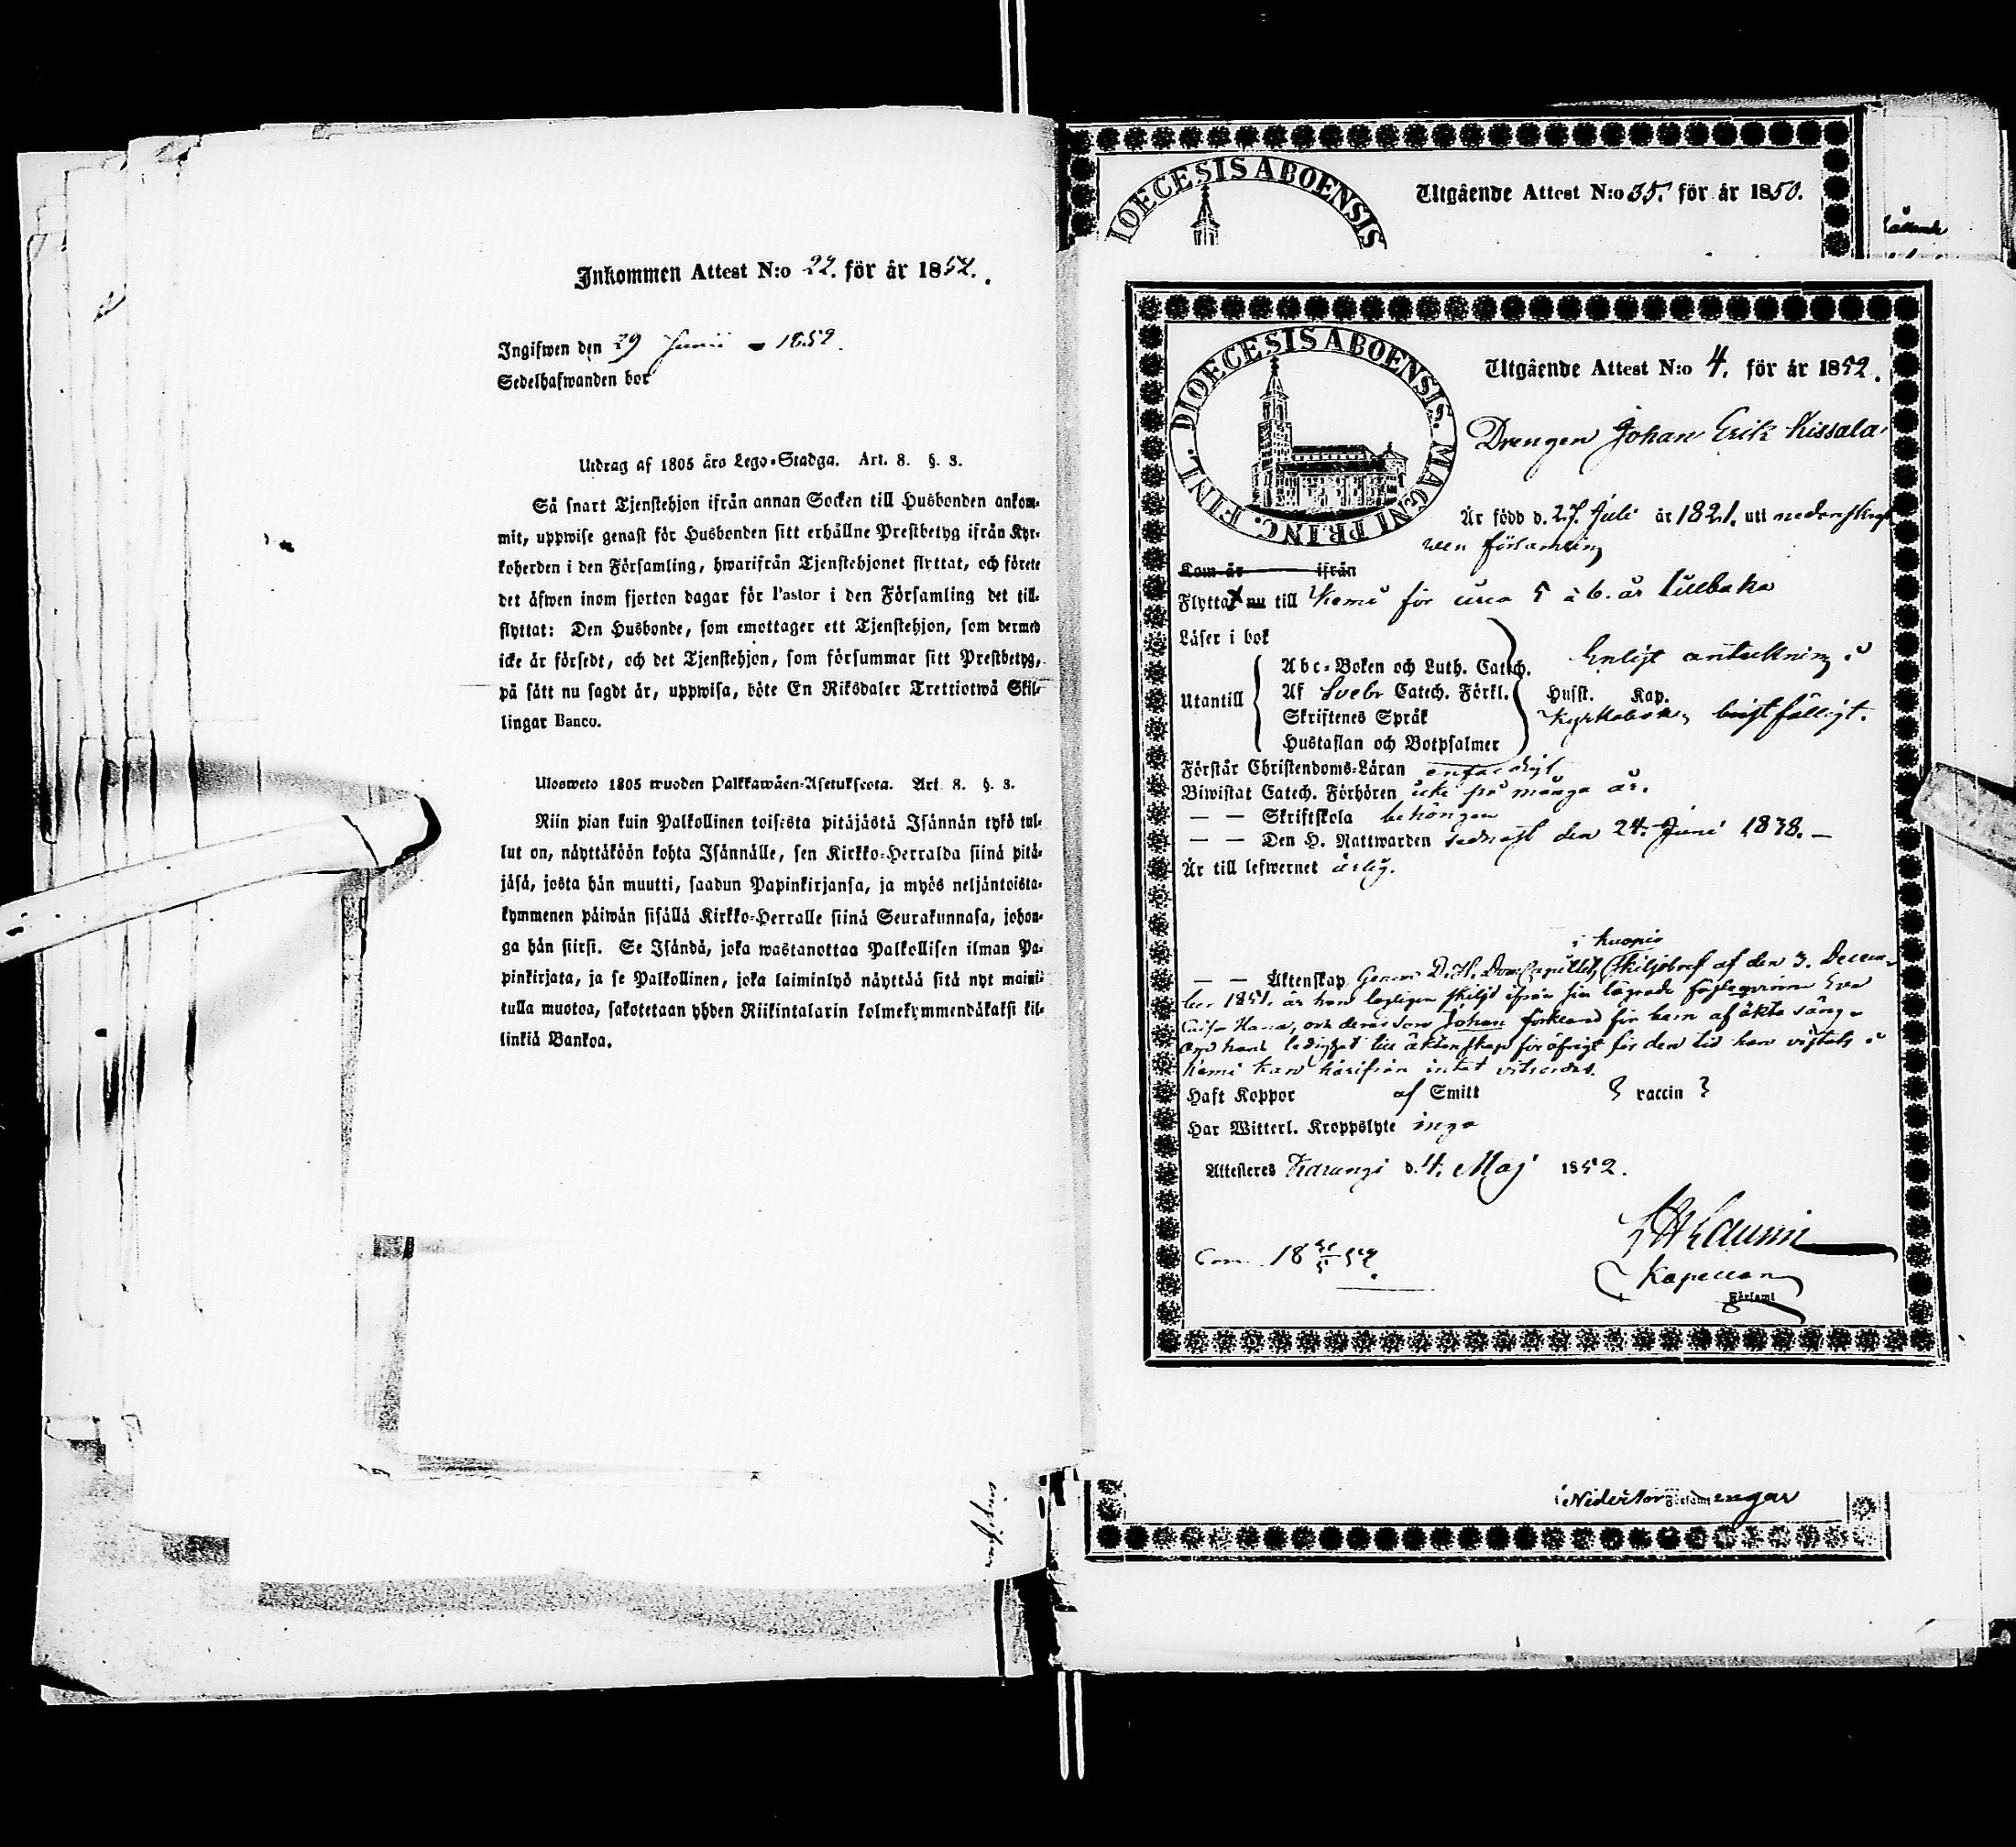 Inkommen Attest N:o 22. för år 1852.
Ingifwen den 29 Junii 1852.
Sedelhafwanden bor
Utdrag af 1805 års Lego-Stadga. Art. 8. §. 3.
Så snart Tjenstehjon ifrån annan Socken till Husbonden ankom-
mit, uppwise genast för Husbonden sitt erhållne Prestbetyg ifrån Kyr-
koherden i den Församling, hwarifrån Tjenstehjonet flyttat, och förete
det äfwen inom fjorton dagar för Pastor i den Församling det till-
flyttat: Den Husbonde, som emottager ett Tjenstehjon, som dermed
icke är försedt, och det Tjenstehjon, som försummar sitt Prestbetyg,
på sätt nu sagdt är, uppwisa, böte En Riksdaler Trettiotwå Skil-
lingar Banco.
Ulosweto 1805 wuoden Palkkawäen-Asetuksesta. Art. 8. §. 3.
Niin pian kuin Palkollinen toisesta pitäjästä Isännän tykö tul-
lut on, näyttäköön kohta Isännälle, sen Kirkko-Herralda siinä pitä-
jäsä, josta hän muutti, saadun Papinkirjansa, ja myös neljäntoista-
kymmenen päiwän sisällä Kirkko-Herralle siinä Seurakunnasa, johon-
ga hän siirsi. Se Isändä, joka wastanottaa Palkollisen ilman Pa-
pinkirjata, ja se Palkollinen, joka laiminlyö näyttää sitä nyt maini-
tulla muotoa, sakotetaan yhden Riikintalarin kolmekymmendäkaksi kil-
linkiä Bankoa.
DIOECESIS ABOENSIS
Utgående Attest N:o 35. för år 1850.
DIOECESIS ABOENSIS. MAGNI PRINC. FINL.
Utgående Attest N:o 4. för år 1852.
Drengen Johan Erik Kissala
Är född d. 27. Juli år 1821. uti nedanskref
wen församling
Kom år ifrån
Flyttat nu till Kemi för circa 5 à 6. år tillbaka
Läser i bok
Utantill
Abc-Boken och Luth. Catech. Enligt anteckning i
Af Svebr Catech. Förkl. Husst. Kap.
Skriftenes Språk Kyrkoboken bristfälligt.
Hustaflan och Botpsalmer
Förstår Christendoms-Läran enfaldigt
Biwistat Catech. Förhören icke på många år.
— — Skriftskola behörigen
— — Den H. Nattwarden sednast den 24. Juni 1838. —
Är till lefwernet ärlig.
i Kuopio
— — Äktenskap Genom D. H. Dom Capitlets skiljobref af den 3. Decem-
ber 1851. är han lagligen skiljd ifrån sin lägrade Eva
Caisa och deras son Johan förklarad för barn af äkta säng.
ledighet till äktenskap för öfrigt för den tid han vistats i
Kemi kan härifrån intet vitsordas.
Haft Koppor af Smitt } vaccin }
Har Witterl. Kroppslyte inga
Attesteras Karungi d. 4. Maj 1852.
Kapellan
Församl
i Nedertorneå